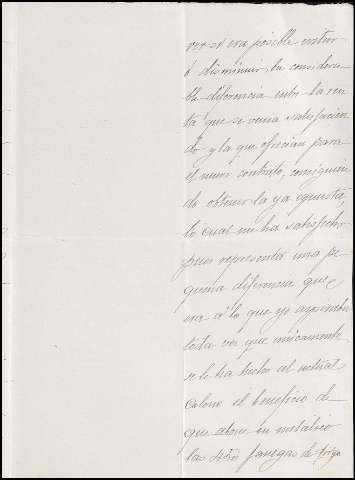 ver si era posible evitar
ó disminuir la considera
ble diferencia entre la ren
ta que se venia satisfacien
do y la que ofrecian para
el nuevo contrato, consiguien
do obtener la ya expuesta,
lo cual me ha satisfecho
pues representa una pe
queña diferencia que
era á lo que yo aspiraba
toda vez que unicamente
se le ha hecho al actual
Colono el beneficio de
que abone en metalico
las 450 fanegas de trigo